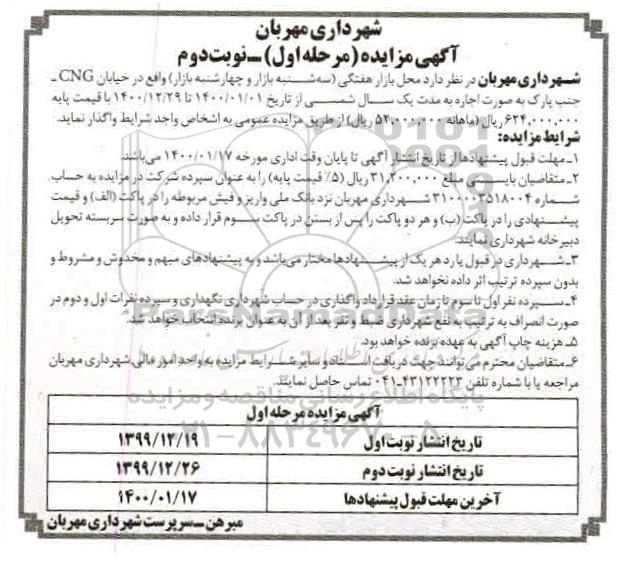 شهرداری مهربان
آگهی مزایده (مرحله اول) ـ نوبت دوم
شهرداری مهربان در نظر دارد محل بازار هفتگی (سه‌شنبه بازار و چهارشنبه بازار) واقع در خیابان CNG ـ
جنب پارک به صورت اجاره به مدت یک سال شمسی از تاریخ ۱۴۰۰/۰۱/۰۱ تا ۱۴۰۰/۱۲/۲۹ با قیمت پایه
۶۲۴,۰۰۰,۰۰۰ ریال (ماهانه ۵۲,۰۰۰,۰۰۰ ریال) از طریق مزایده عمومی به اشخاص واجد شرایط واگذار نماید.
شرایط مزایده:
۱ـ مهلت قبول پیشنهادها از تاریخ انتشار آگهی تا پایان وقت اداری مورخه ۱۴۰۰/۰۱/۱۷ می‌باشد.
۲ـ متقاضیان بایستی مبلغ ۳۱,۲۰۰,۰۰۰ ریال (۵٪ قیمت پایه) را به عنوان سپرده شرکت در مزایده به حساب
شماره ۳۱۰۰۰۰۳۵۱۸۰۰۴ شهرداری مهربان نزد بانک ملی واریز و فیش مربوطه را در پاکت (الف) و قیمت
پیشنهادی را در پاکت (ب) و هر دو پاکت را پس از بستن در پاکت سوم قرار داده و به صورت سربسته تحویل
دبیرخانه شهرداری نمایند.
۳ـ شهرداری در قبول یا رد هر یک از پیشنهادها مختار می‌باشد و به پیشنهادهای مبهم و مخدوش و مشروط و
بدون سپرده ترتیب اثر داده نخواهد شد.
۴ـ سپرده نفر اول تا سوم تا زمان عقد قرارداد واگذاری در حساب شهرداری نگهداری و سپرده نفرات اول و دوم در
صورت انصراف به ترتیب به نفع شهرداری ضبط و نفر بعد از آن به عنوان برنده انتخاب خواهد شد.
۵ـ هزینه چاپ آگهی به عهده برنده خواهد بود.
۶ـ متقاضیان محترم می‌توانند جهت دریافت اسناد و سایر شرایط مزایده به واحد امور مالی شهرداری مهربان
مراجعه یا با شماره تلفن ۴۳۱۲۲۲۲۳-۰۴۱ تماس حاصل نمایند.
آگهی مزایده مرحله اول
تاریخ انتشار نوبت اول ۱۳۹۹/۱۲/۱۹
تاریخ انتشار نوبت دوم ۱۳۹۹/۱۲/۲۶
آخرین مهلت قبول پیشنهادها ۱۴۰۰/۰۱/۱۷
میرهن ـ سرپرست شهرداری مهربان
ParsNamadData
پایگاه اطلاع رسانی مناقصه و مزایده
۰۲۱-۸۸۳۴۹۶۷۰-۵